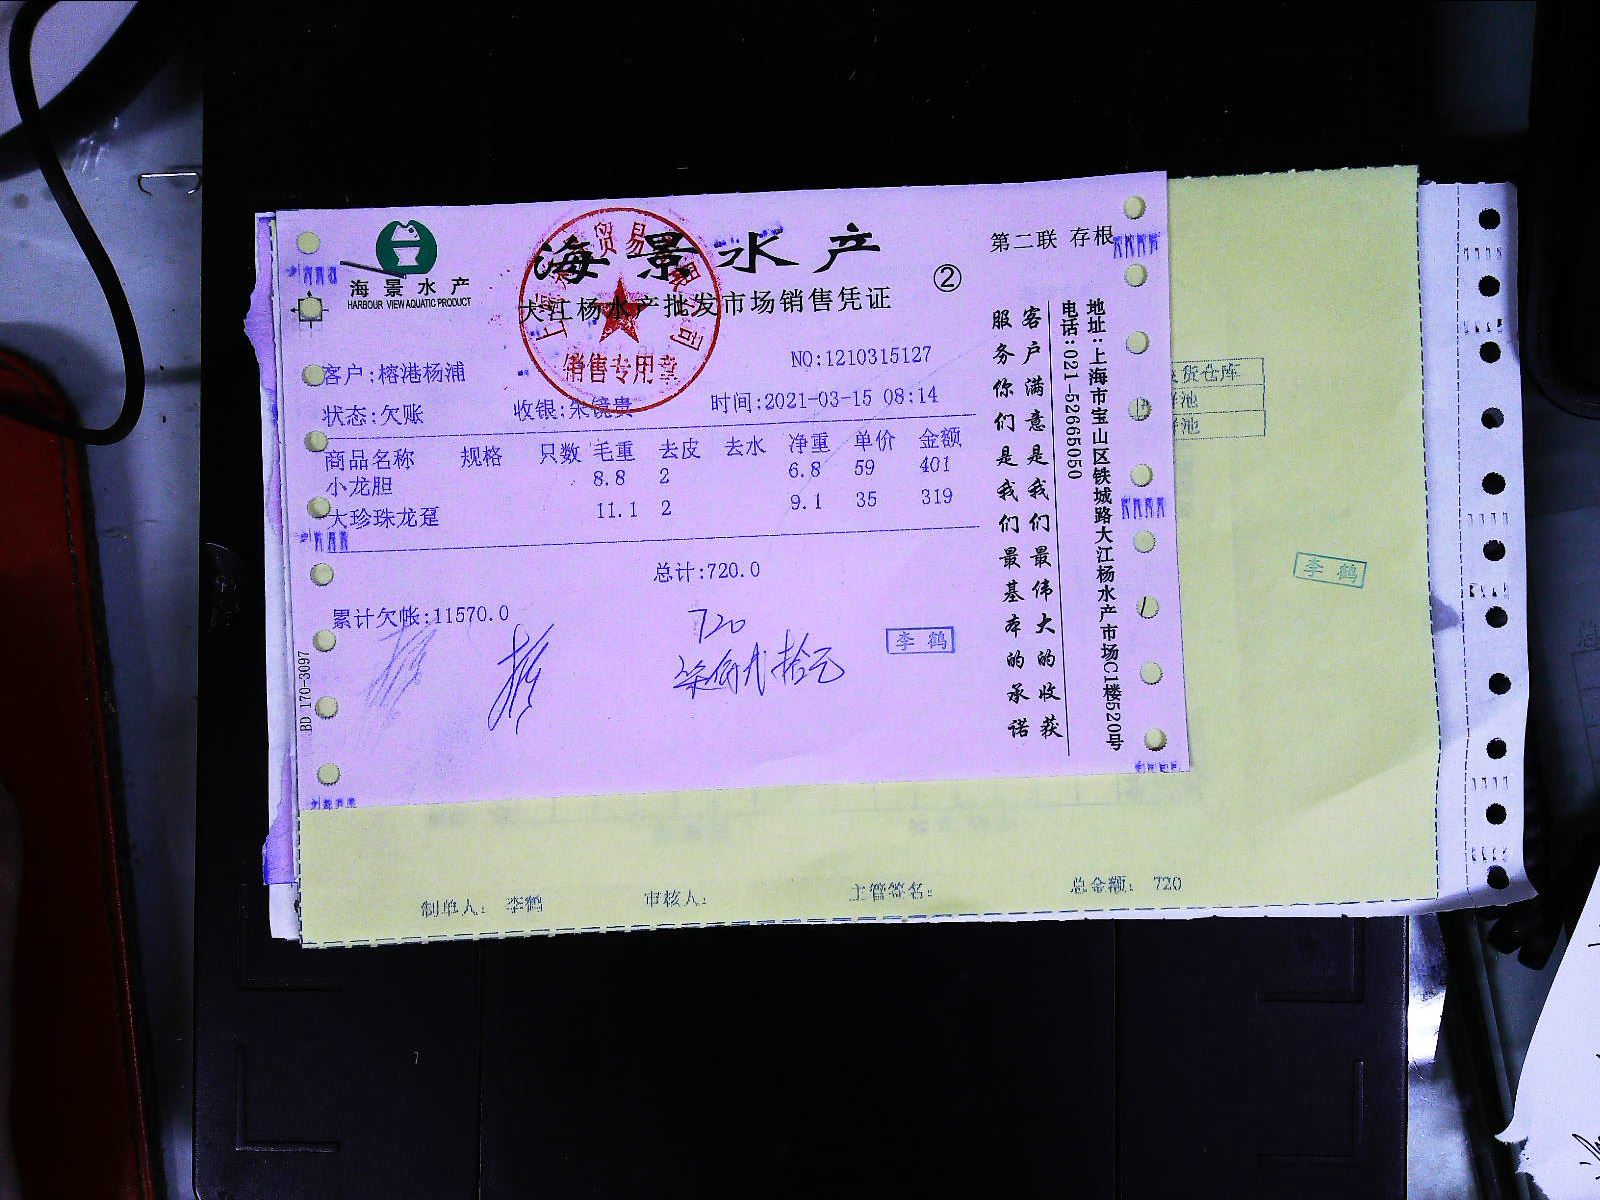 海景水产
HARBOUR VIEW AQUATIC PRODUCT
海景水产
第二联 存根
大江杨水产批发市场销售凭证
②
贸易
司
销售专用章
客户:榕港杨浦
NO:1210315127
状态:欠账
收银:朱镜贵
时间:2021-03-15 08:14
商品名称 规格 只数 毛重 去皮 去水 净重 单价 金额
小龙胆 8.8 2 6.8 59 401
大珍珠龙趸 11.1 2 9.1 35 319
总计:720.0
累计欠帐:11570.0
720
柒佰贰拾元
李鹤
BD 170-3097
客户满意是我们最伟大的收获
服务你们是我们最基本的承诺
地址:上海市宝山区铁城路大江杨水产市场C1楼520号
电话:021-52665050
货仓库
池
池
李鹤
制单人: 李鹤
审核人:
主管签名:
总金额: 720